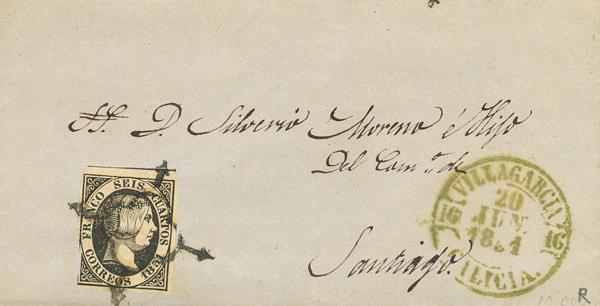 SS. D. Silverio Moreno é Hijo
Del Com.º de
Santiago.
FRANCO SEIS CUARTOS
CORREOS 1851
VILLAGARCIA
20
16 JUN. 16
1851
R